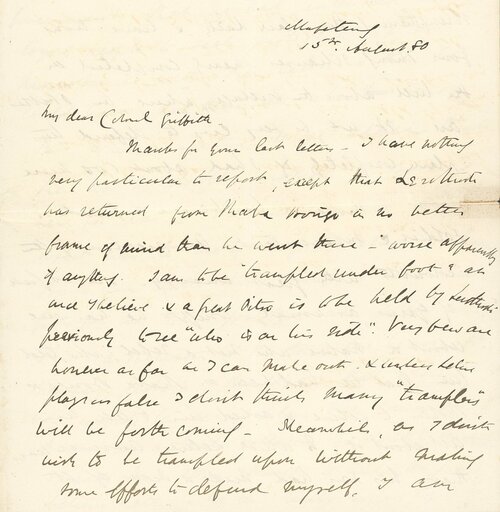 Mafeteng
15th August 80
My dear Colonel Griffith
Thanks for your last letter - I have nothing
very particular to report, except that Lerothodi
has returned from Thaba Bosigo in no better
frame of mind than he went there - worse apparently
if anything. I am to be "trampled under foot" at
once I believe & a great Pitso is to be held by Lerothodi
previously to see "who is on his side". Very few are
however as far as I can make out. & unless
plays us false I don't think many "tramplers"
will be forthcoming - Meanwhile, as I don't
wish to be trampled upon without making
some efforts to defend myself, I am